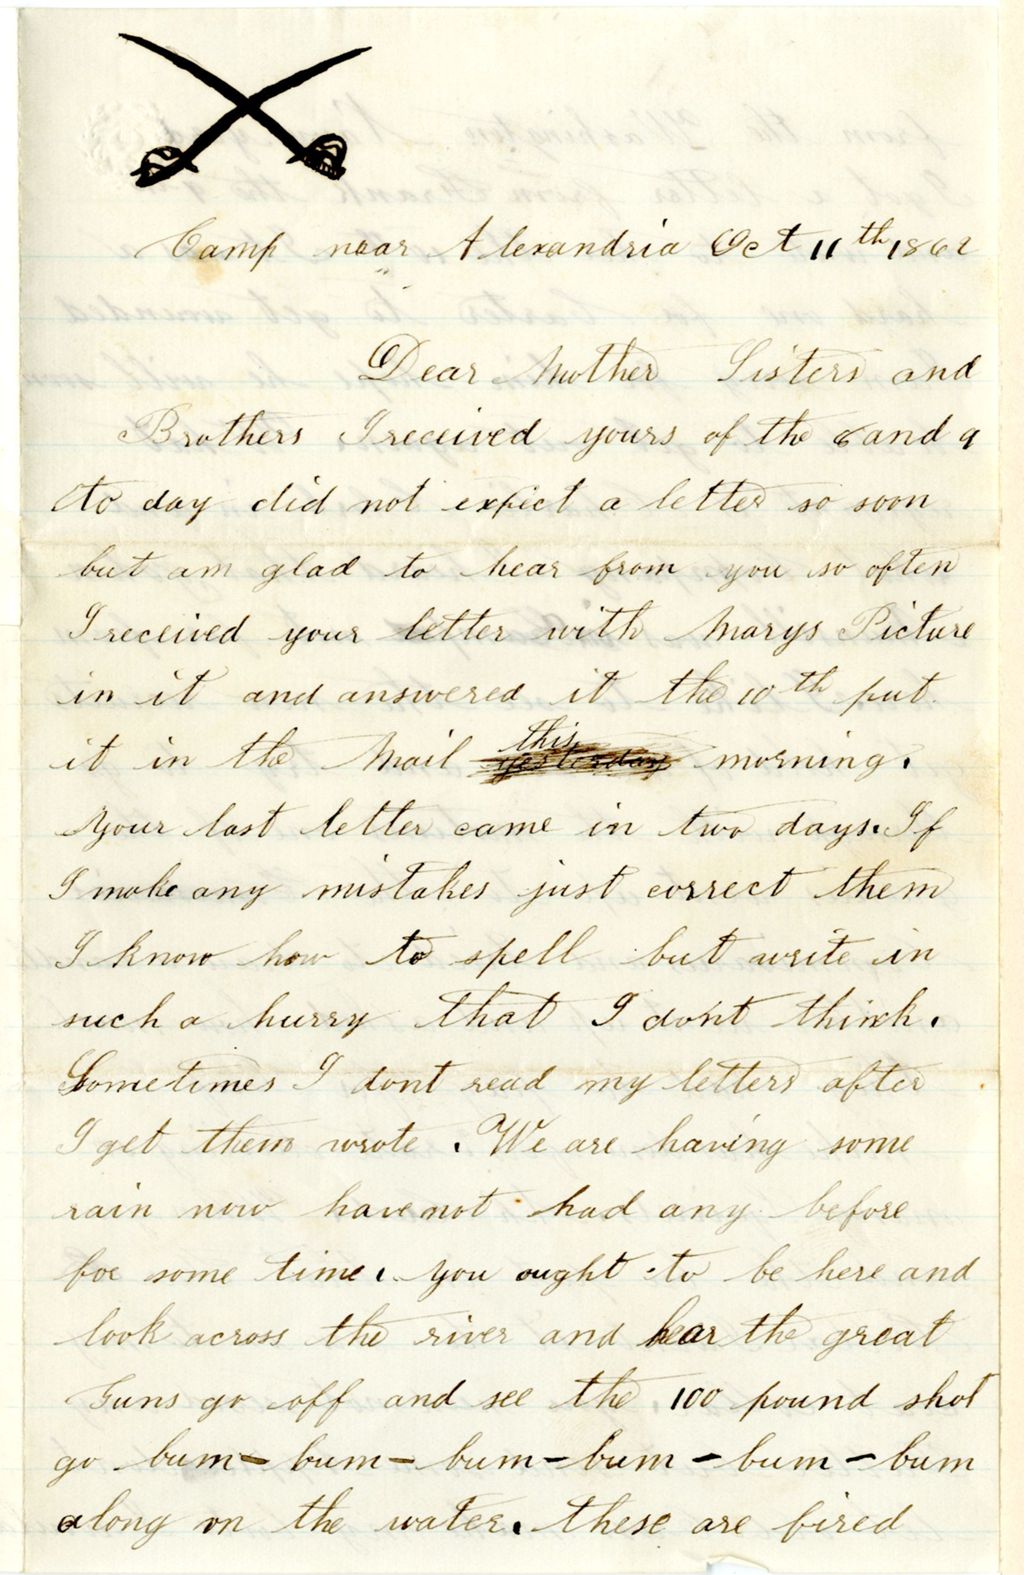 Camp near Alexandria Oct 11th 1862
Dear Mother Sisters and
Brothers I received yours of the 8 and 9
to day did not expect a letter so soon
but am glad to hear from you so often
I received your letter with Marys Picture
in it and answered it the 10th put
it in the Mail this yesterday morning.
Your last letter came in two days. If
I make any mistakes just correct them
I know how to spell but write in
such a hurry that I dont think.
Sometimes I dont read my letters after
I get them wrote. We are having some
rain now have not had any before
for some time. you ought to be here and
look across the river and hear the great
Guns go off and see the 100 pound shot
go bum - bum - bum - bum - bum - bum
along on the water. these are fired